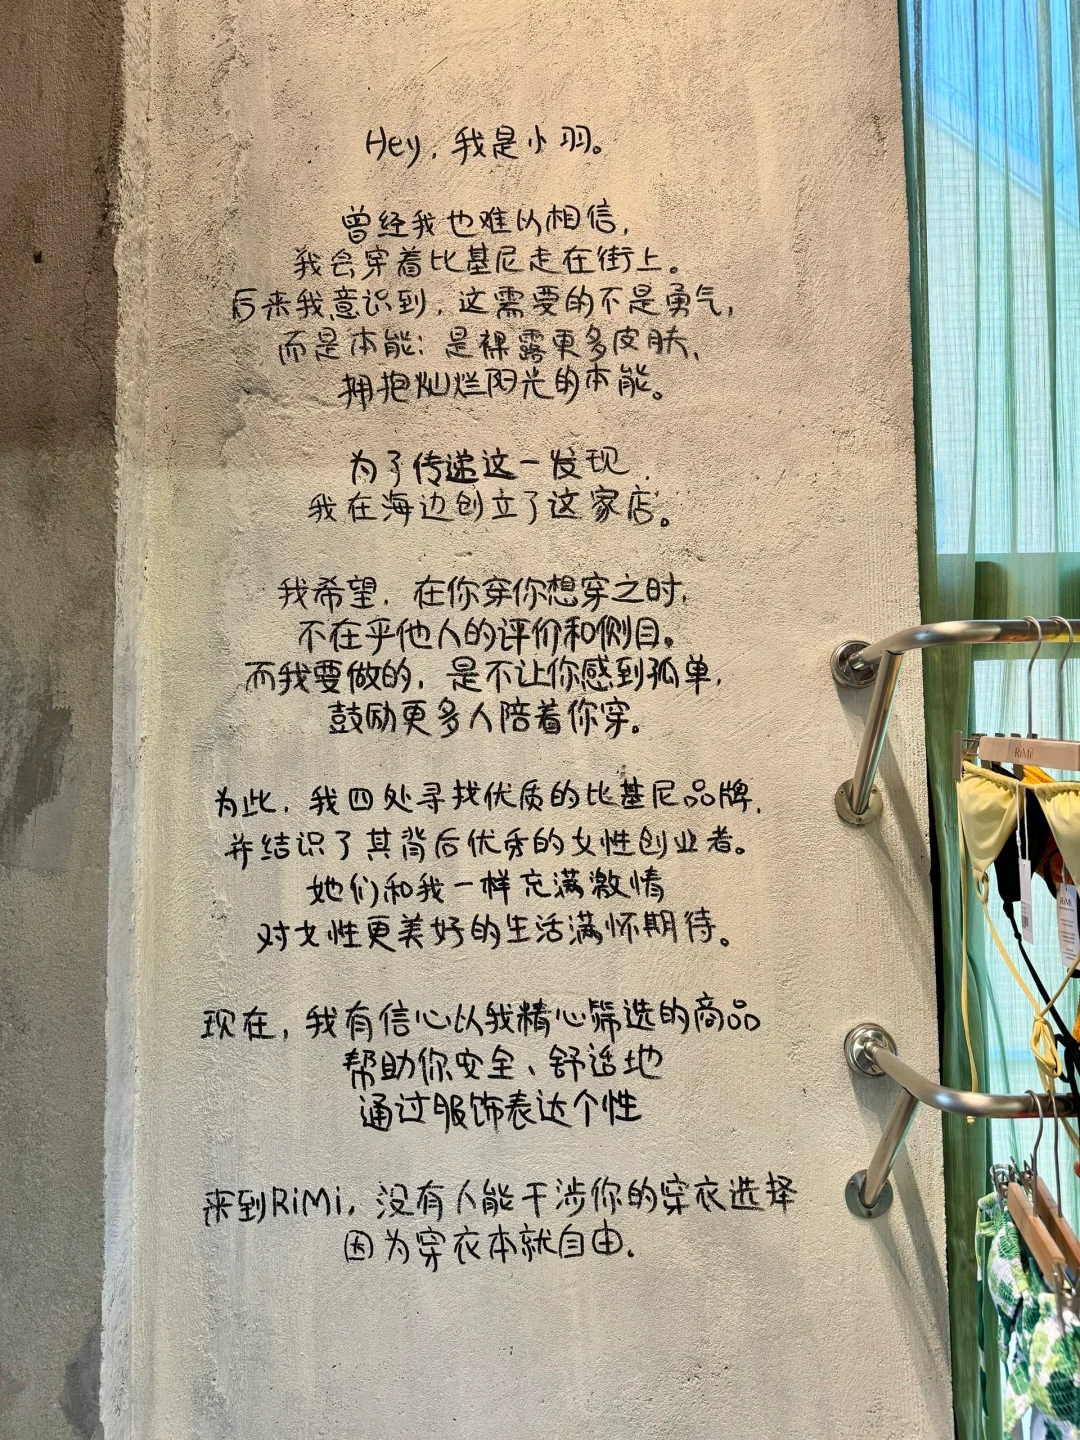 Hey，我是小羽。
曾经我也难以相信，
我会穿着比基尼走在街上。
后来我意识到，这需要的不是勇气，
而是本能：是裸露更多皮肤、
拥抱灿烂阳光的本能。
为了传递这一发现，
我在海边创立了这家店。
我希望，在你穿你想穿之时，
不在乎他人的评价和侧目。
而我要做的，是不让你感到孤单，
鼓励更多人陪着你穿。
为此，我四处寻找优质的比基尼品牌，
并结识了其背后优秀的女性创业者。
她们和我一样充满激情
对女性更美好的生活满怀期待。
现在，我有信心以我精心筛选的商品
帮助你安全、舒适地
通过服饰表达个性
来到RiMi，没有人能干涉你的穿衣选择
因为穿衣本就自由.
RiMi
RiMi